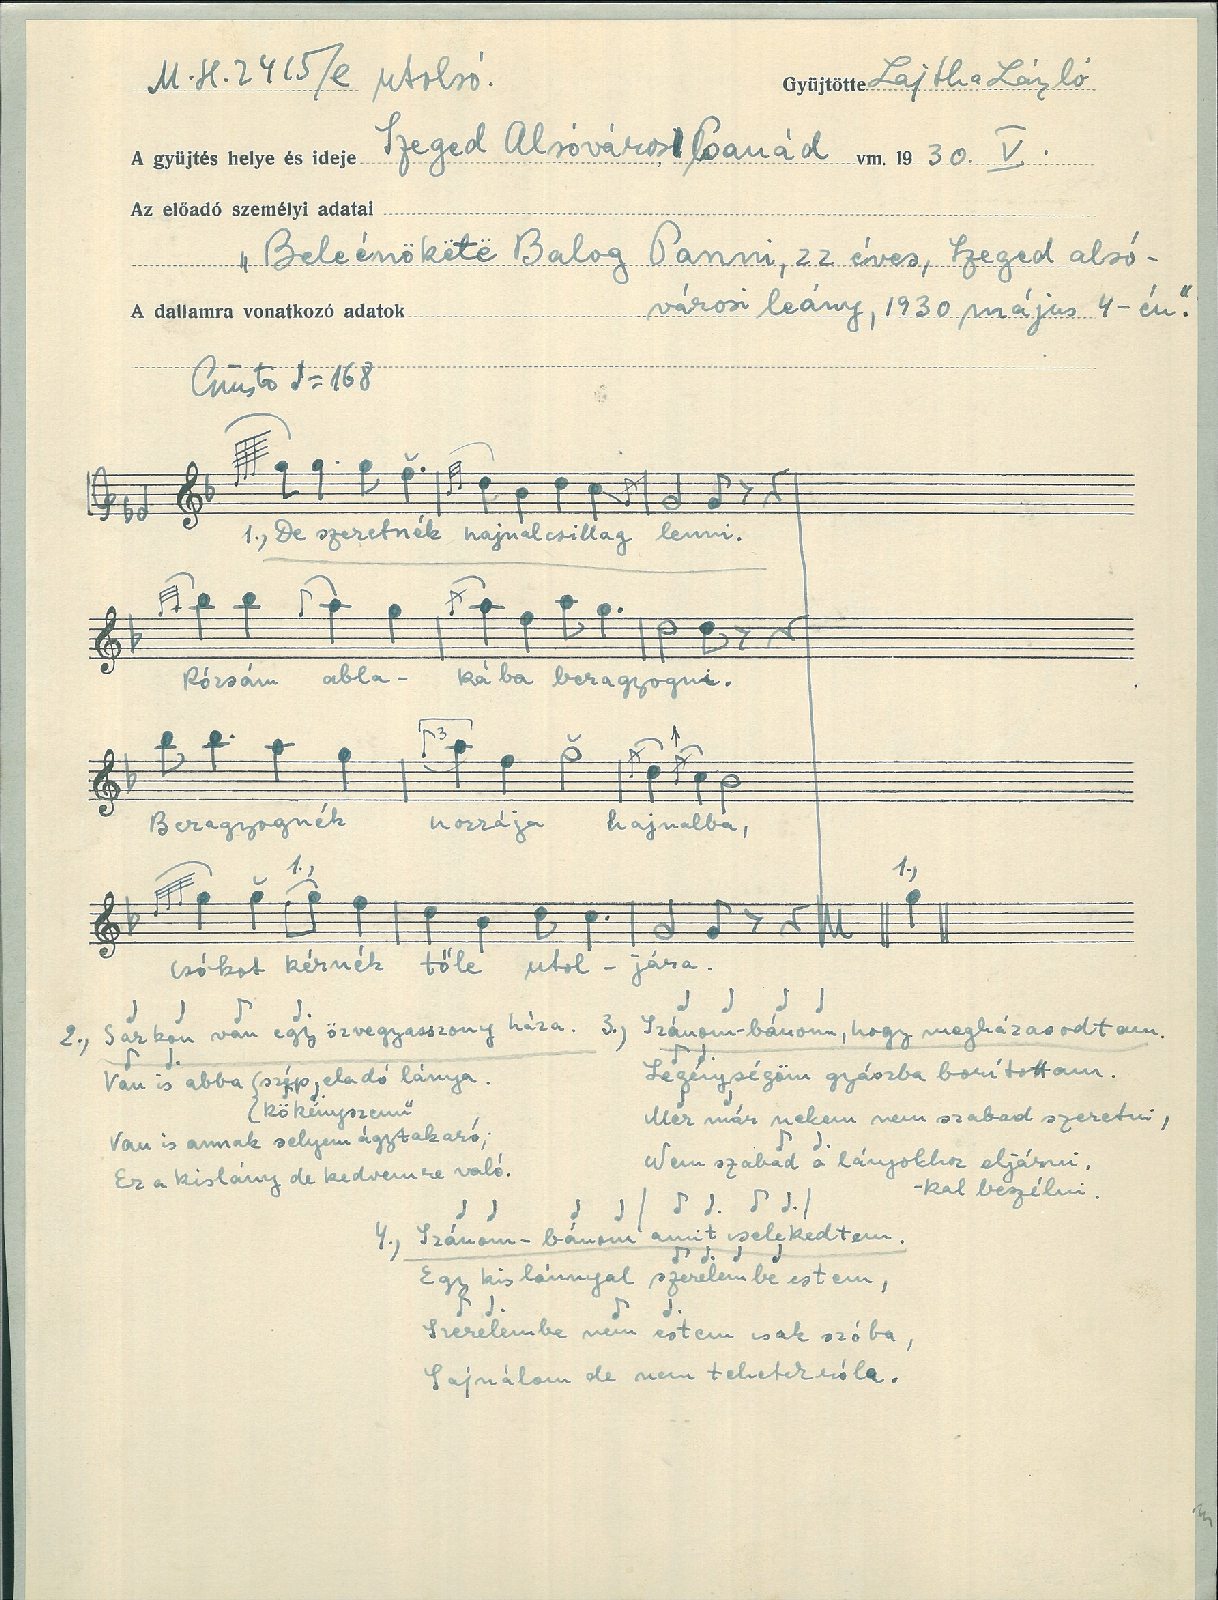 M.H.2415/e utolsó.
Gyüjtötte Lajtha László
A gyüjtés helye és ideje Szeged Alsóváros, Csanád vm. 1930. V.
Az előadó személyi adatai
„Beleénökëtë Balog Panni, 22 éves, Szeged alsó-
A dallamra vonatkozó adatok városi leány, 1930 május 4-én."
Giusto ♩=168
1., De szeretnék hajnalcsillag lenni.
Rózsám abla- kába beragyogni.
3
Beragyognék hozzája hajnalba,
1.,
1.,
csókot kérnék tőle utol-jára.
2., Sarkon van egy özvegyasszony háza.
Van is abba (szép, eladó lánya.
(kökényszemű
Van is annak selyem ágytakaró,
Ez a kislány de kedvemre való.
3., Szánom-bánom, hogy megházasodtam.
Legénységöm gyászba borítottam.
Mer már nekem nem szabad szeretni,
Nem szabad a lányokhoz eljárni.
-kal beszélni.
4., Szánom-bánom amit cselekedtem.
Egy kislánnyal szerelembe estem,
Szerelembe nem estem csak szóba,
Sajnálom de nem tehetek róla.